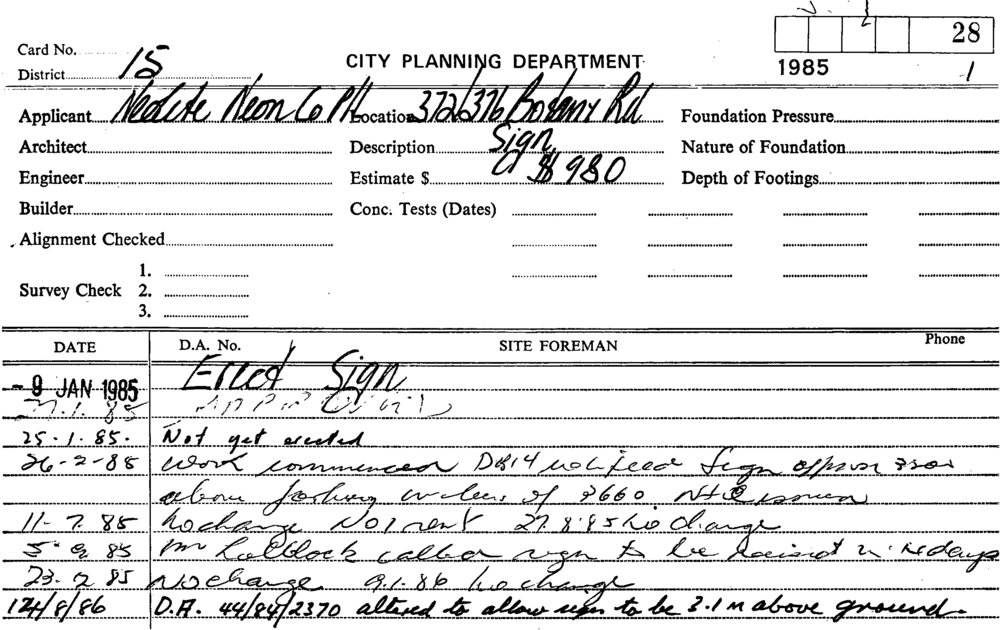 28
Card No.
District 15
CITY PLANNING DEPARTMENT
1985 1
Applicant Neolite Neon Co P/L Location 372/376 Botany Rd Foundation Pressure
Architect Description Sign Nature of Foundation
Engineer Estimate $ $980 Depth of Footings
Builder Conc. Tests (Dates)
Alignment Checked
1.
Survey Check 2.
3.
DATE D.A. No. SITE FOREMAN Phone
- 9 JAN 1985 Erect Sign
.1.85
25.1.85. Not yet erected
26-2-85 work commenced notified sign
above footway in lieu of 3660
11-7.85 No change Not sent 27.8.85 No change
5 9 85 Mr called sign to be raised in
23. 85 No change 9.1.86 No change
/8/86 D.A. 44/84/2370 altered to allow sign to be 3.1 m above ground.